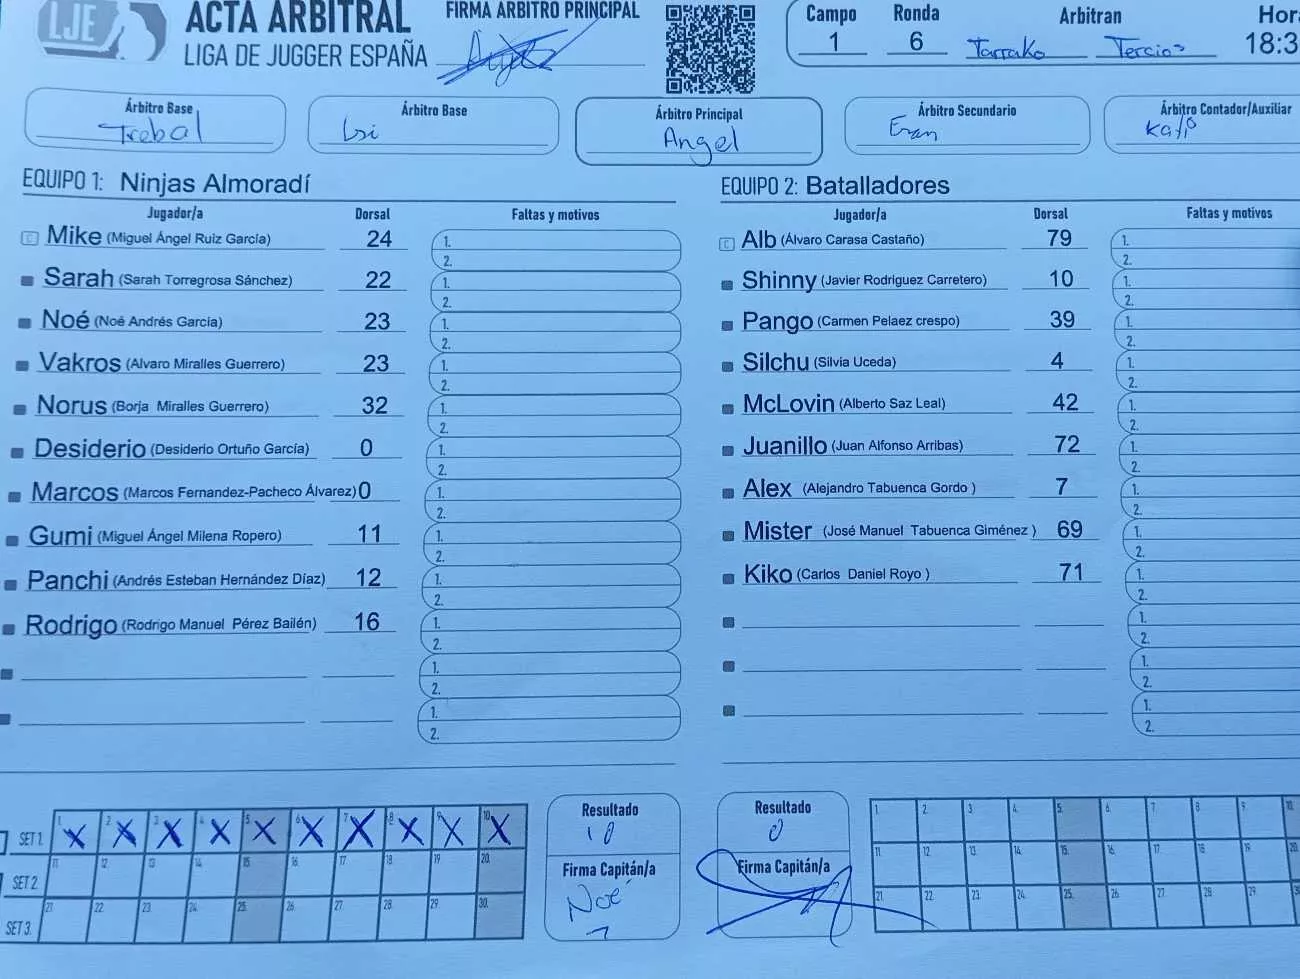 LJE ACTA ARBITRAL FIRMA ARBITRO PRINCIPAL Campo Ronda Arbitran Hor
LIGA DE JUGGER ESPAÑA 1 6 Tarrako Tercios 18:3
Árbitro Base Árbitro Base Árbitro Principal Árbitro Secundario Árbitro Contador/Auxiliar
Trebal Isi Angel Eran
EQUIPO 1: Ninjas Almoradí EQUIPO 2: Batalladores
Jugador/a Dorsal Faltas y motivos Jugador/a Dorsal Faltas y motivos
C Mike (Miguel Ángel Ruiz García) 24 1. C Alb (Álvaro Carasa Castaño) 79 1.
2. 2.
Sarah (Sarah Torregrosa Sánchez) 22 1. Shinny (Javier Rodriguez Carretero) 10 1.
2. 2.
Noé (Noé Andrés García) 23 1. Pango (Carmen Pelaez crespo) 39 1.
2. 2.
Vakros (Alvaro Miralles Guerrero) 23 1. Silchu (Silvia Uceda) 4 1.
2. 2.
Norus (Borja Miralles Guerrero) 32 1. McLovin (Alberto Saz Leal) 42 1.
2. 2.
Desiderio (Desiderio Ortuño García) 0 1. Juanillo (Juan Alfonso Arribas) 72 1.
2. 2.
Marcos (Marcos Fernandez-Pacheco Álvarez) 0 1. Alex (Alejandro Tabuenca Gordo ) 7 1.
2. 2.
Gumi (Miguel Ángel Milena Ropero) 11 1. Mister (José Manuel Tabuenca Giménez ) 69 1.
2. 2.
Panchi (Andrés Esteban Hernández Díaz) 12 1. Kiko (Carlos Daniel Royo ) 71 1.
2. 2.
Rodrigo (Rodrigo Manuel Pérez Bailén) 16 1. 1.
2. 2.
1. 1.
2. 2.
1. 1.
2. 2.
Resultado Resultado
SET 1. 1. X 2. X 3. X 4. X 5. X 6. X 7. X 8. X 9. X 10. X 10 0 1. 2. 3. 4. 5. 6. 7. 8. 9. 10.
SET 2. 11. 12. 13. 14. 15. 16. 17. 18. 19. 20. Firma Capitán/a Firma Capitán/a 11. 12. 13. 14. 15. 16. 17. 18. 19. 20.
SET 3. 21. 22. 23. 24. 25. 26. 27. 28. 29. 30. Noé 21. 22. 23. 24. 25. 26. 27. 28. 29.